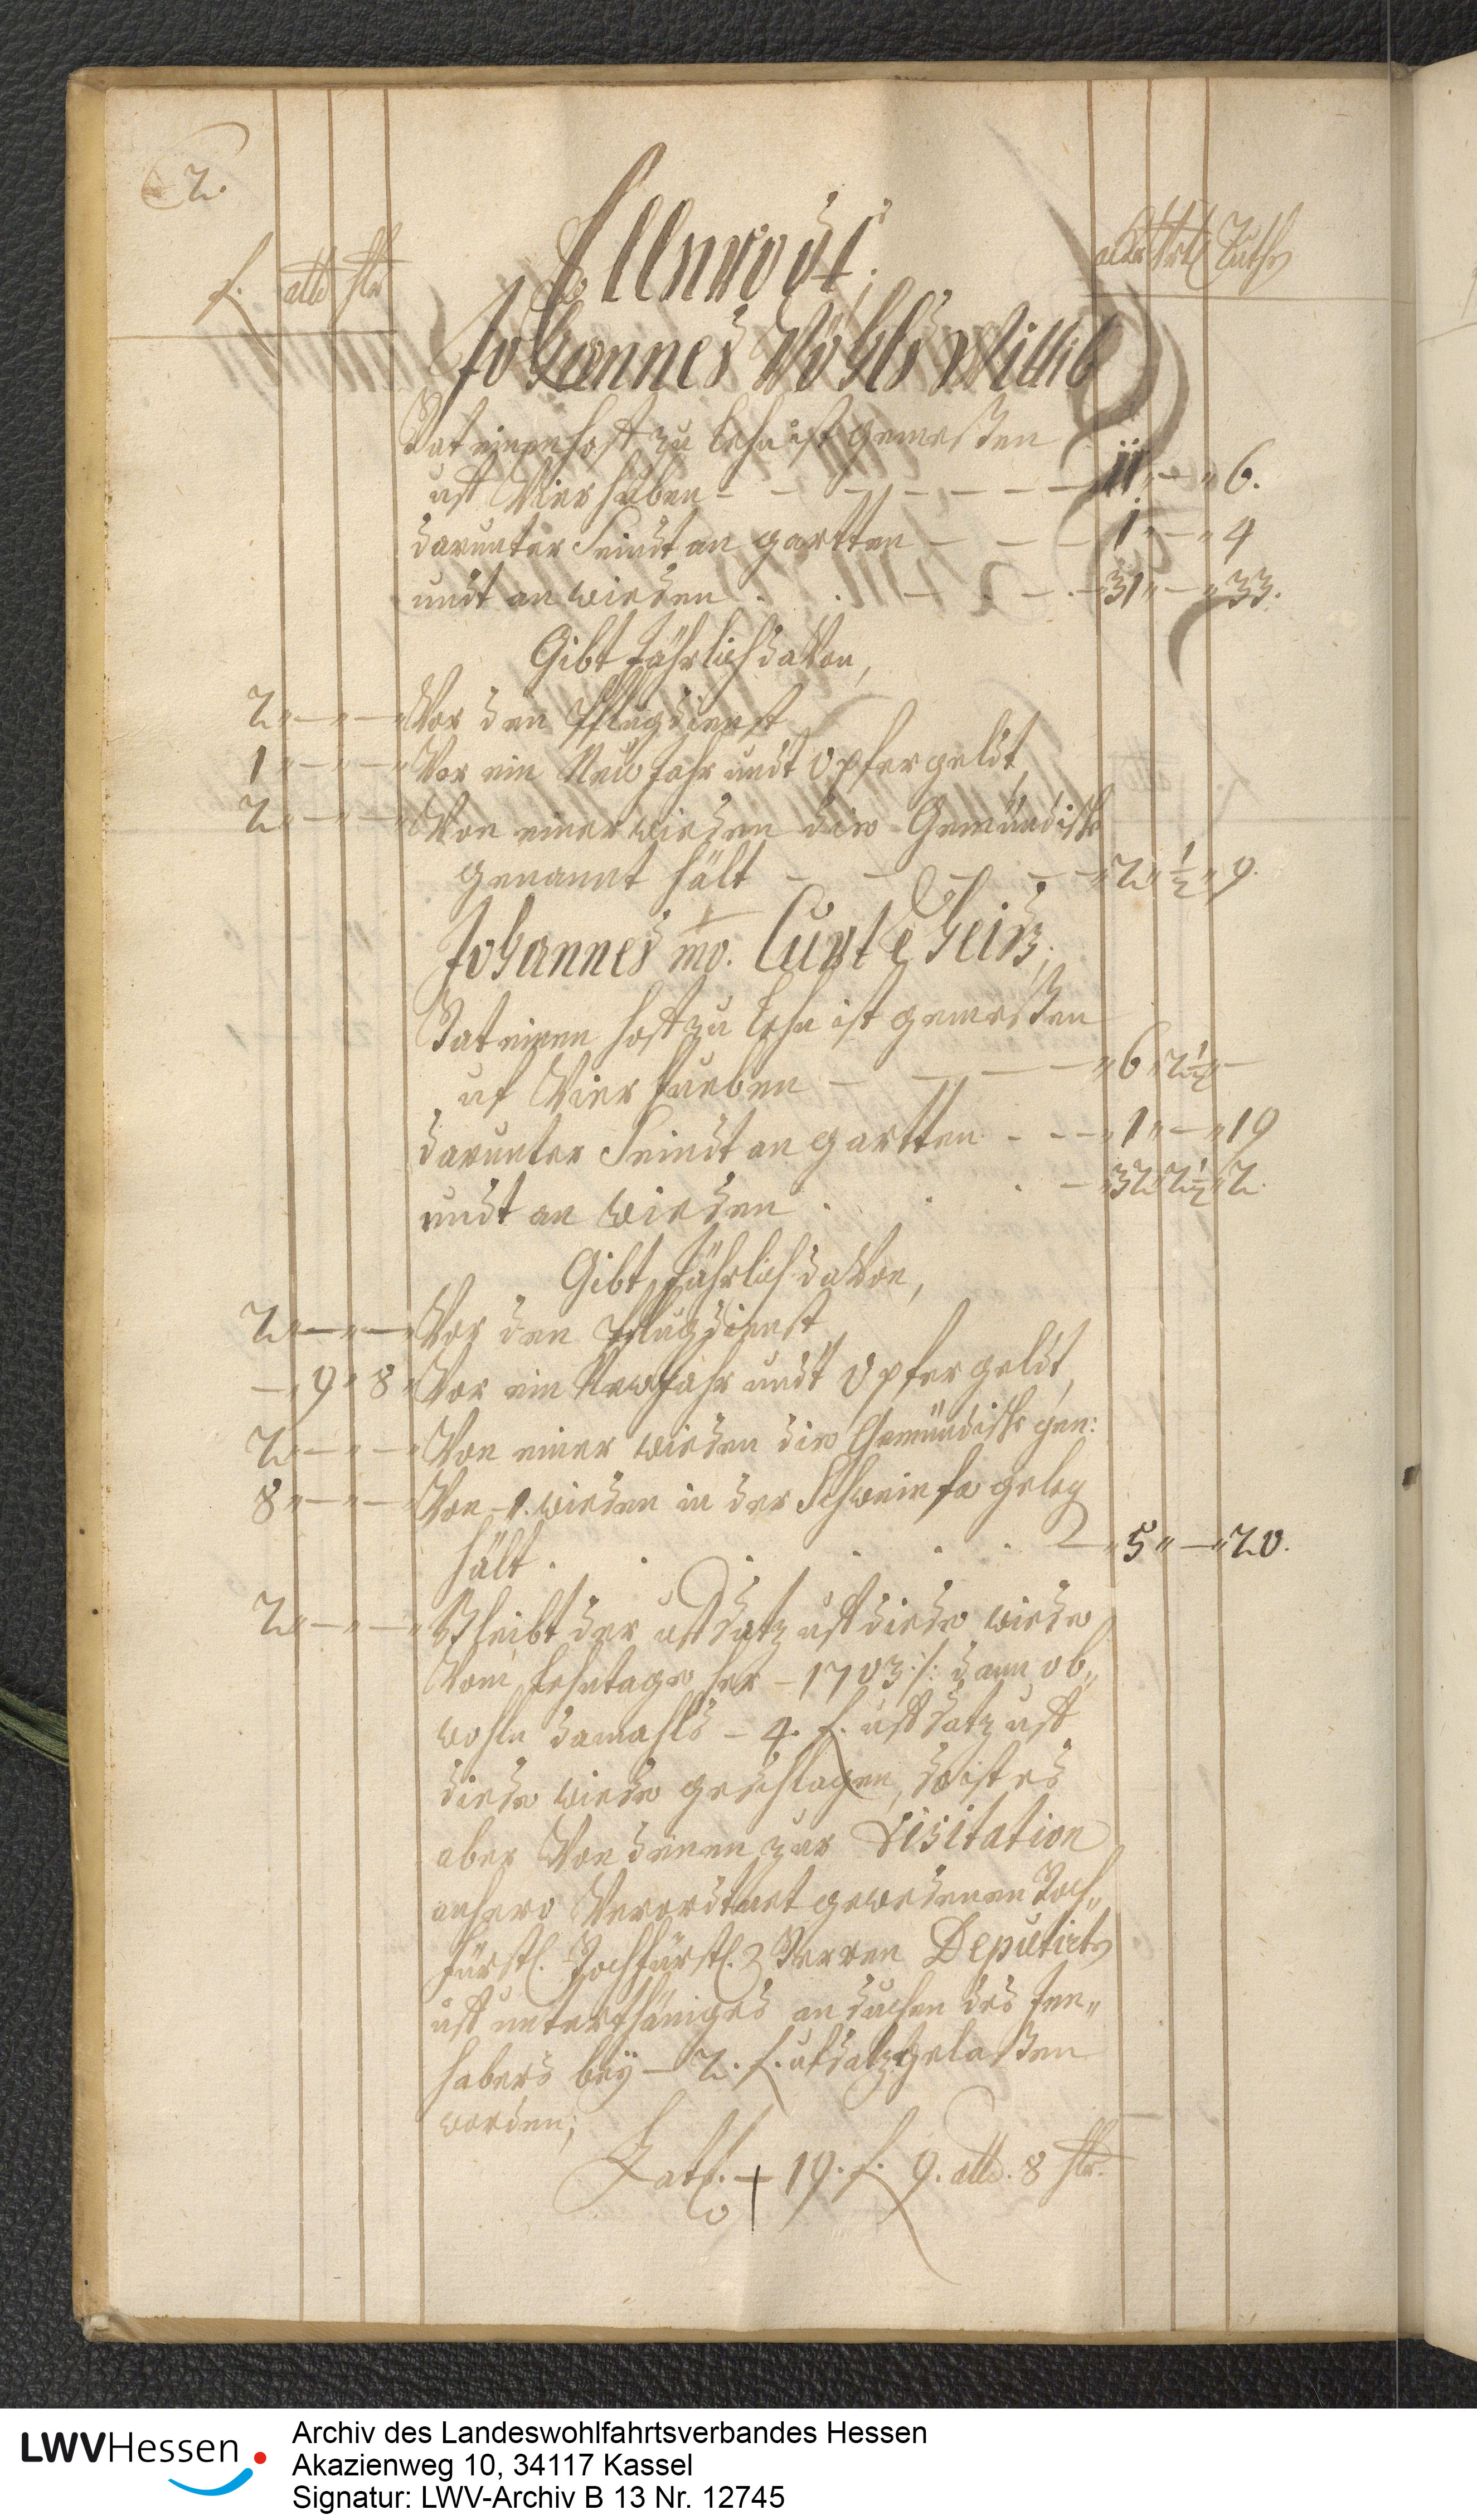 2.
f. alb hlr
Ellnrodt;
ackr Vrtl Ruth
Johannes Vöhls Wittib
Hat einen hoff zu Lehn ist gemeßen
uff Vier huben - - - - - - - 11 " - " 6.
darunter Seindt an gartten - - - 1 " - " 4
undt an wiesen . . - - - 31 " - " 33.
Gibt Jährlich davon,
2 " - " - " Vor den Pflugdienst
1 " - " - " Vor ein Neu Jahr undt Opfergeldt,
2 " - " - " Von einer wiesen die Gemündische
genannt hält - - - - " 2 " ½ " 9.
Johannes mo. Curt Geiß;
Hat einen hoff zu Lehn ist gemeßen
uf Vier hueben - - - - " 6 " 2½ " -
darunter Seindt an gartten - - - " 1 " - " 19
undt an wiesen . . . - " 32 " 2½ " 2.
Gibt Jährlich davon,
2 " - " - " Vor den Pflugdienst
- " 9 " 8 " Vor ein Newjahr undt Opfergeldt,
2 " - " - Von einer wiesen die Gemündische gen:
8 " - " - Von - 1. wiesen in der Schweinfa geleg
hält . . . . . . - " 5 " - " 20.
2 " - " - " Bleibt der uffsatz uff diese wiese
Vom Lehntage her - 1703 ./. dann ob"
wohln damahls - 4. f. uffsatz uff
diese wiese geschlagen, so ist es
aber Von denen zur Visitation
anhero Verordtnet gewesenen Hoch"
fürstl. Hochfürstl. Herren Deputirt
uff unterthäniges ansuchen des Jnn"
habers bey - 2. f. ufsatz gelaßen
worden;
Lat. 19. f. 9. alb. 8 hlr.
LWVHessen
Archiv des Landeswohlfahrtsverbandes Hessen
Akazienweg 10, 34117 Kassel
Signatur: LWV-Archiv B 13 Nr. 12745